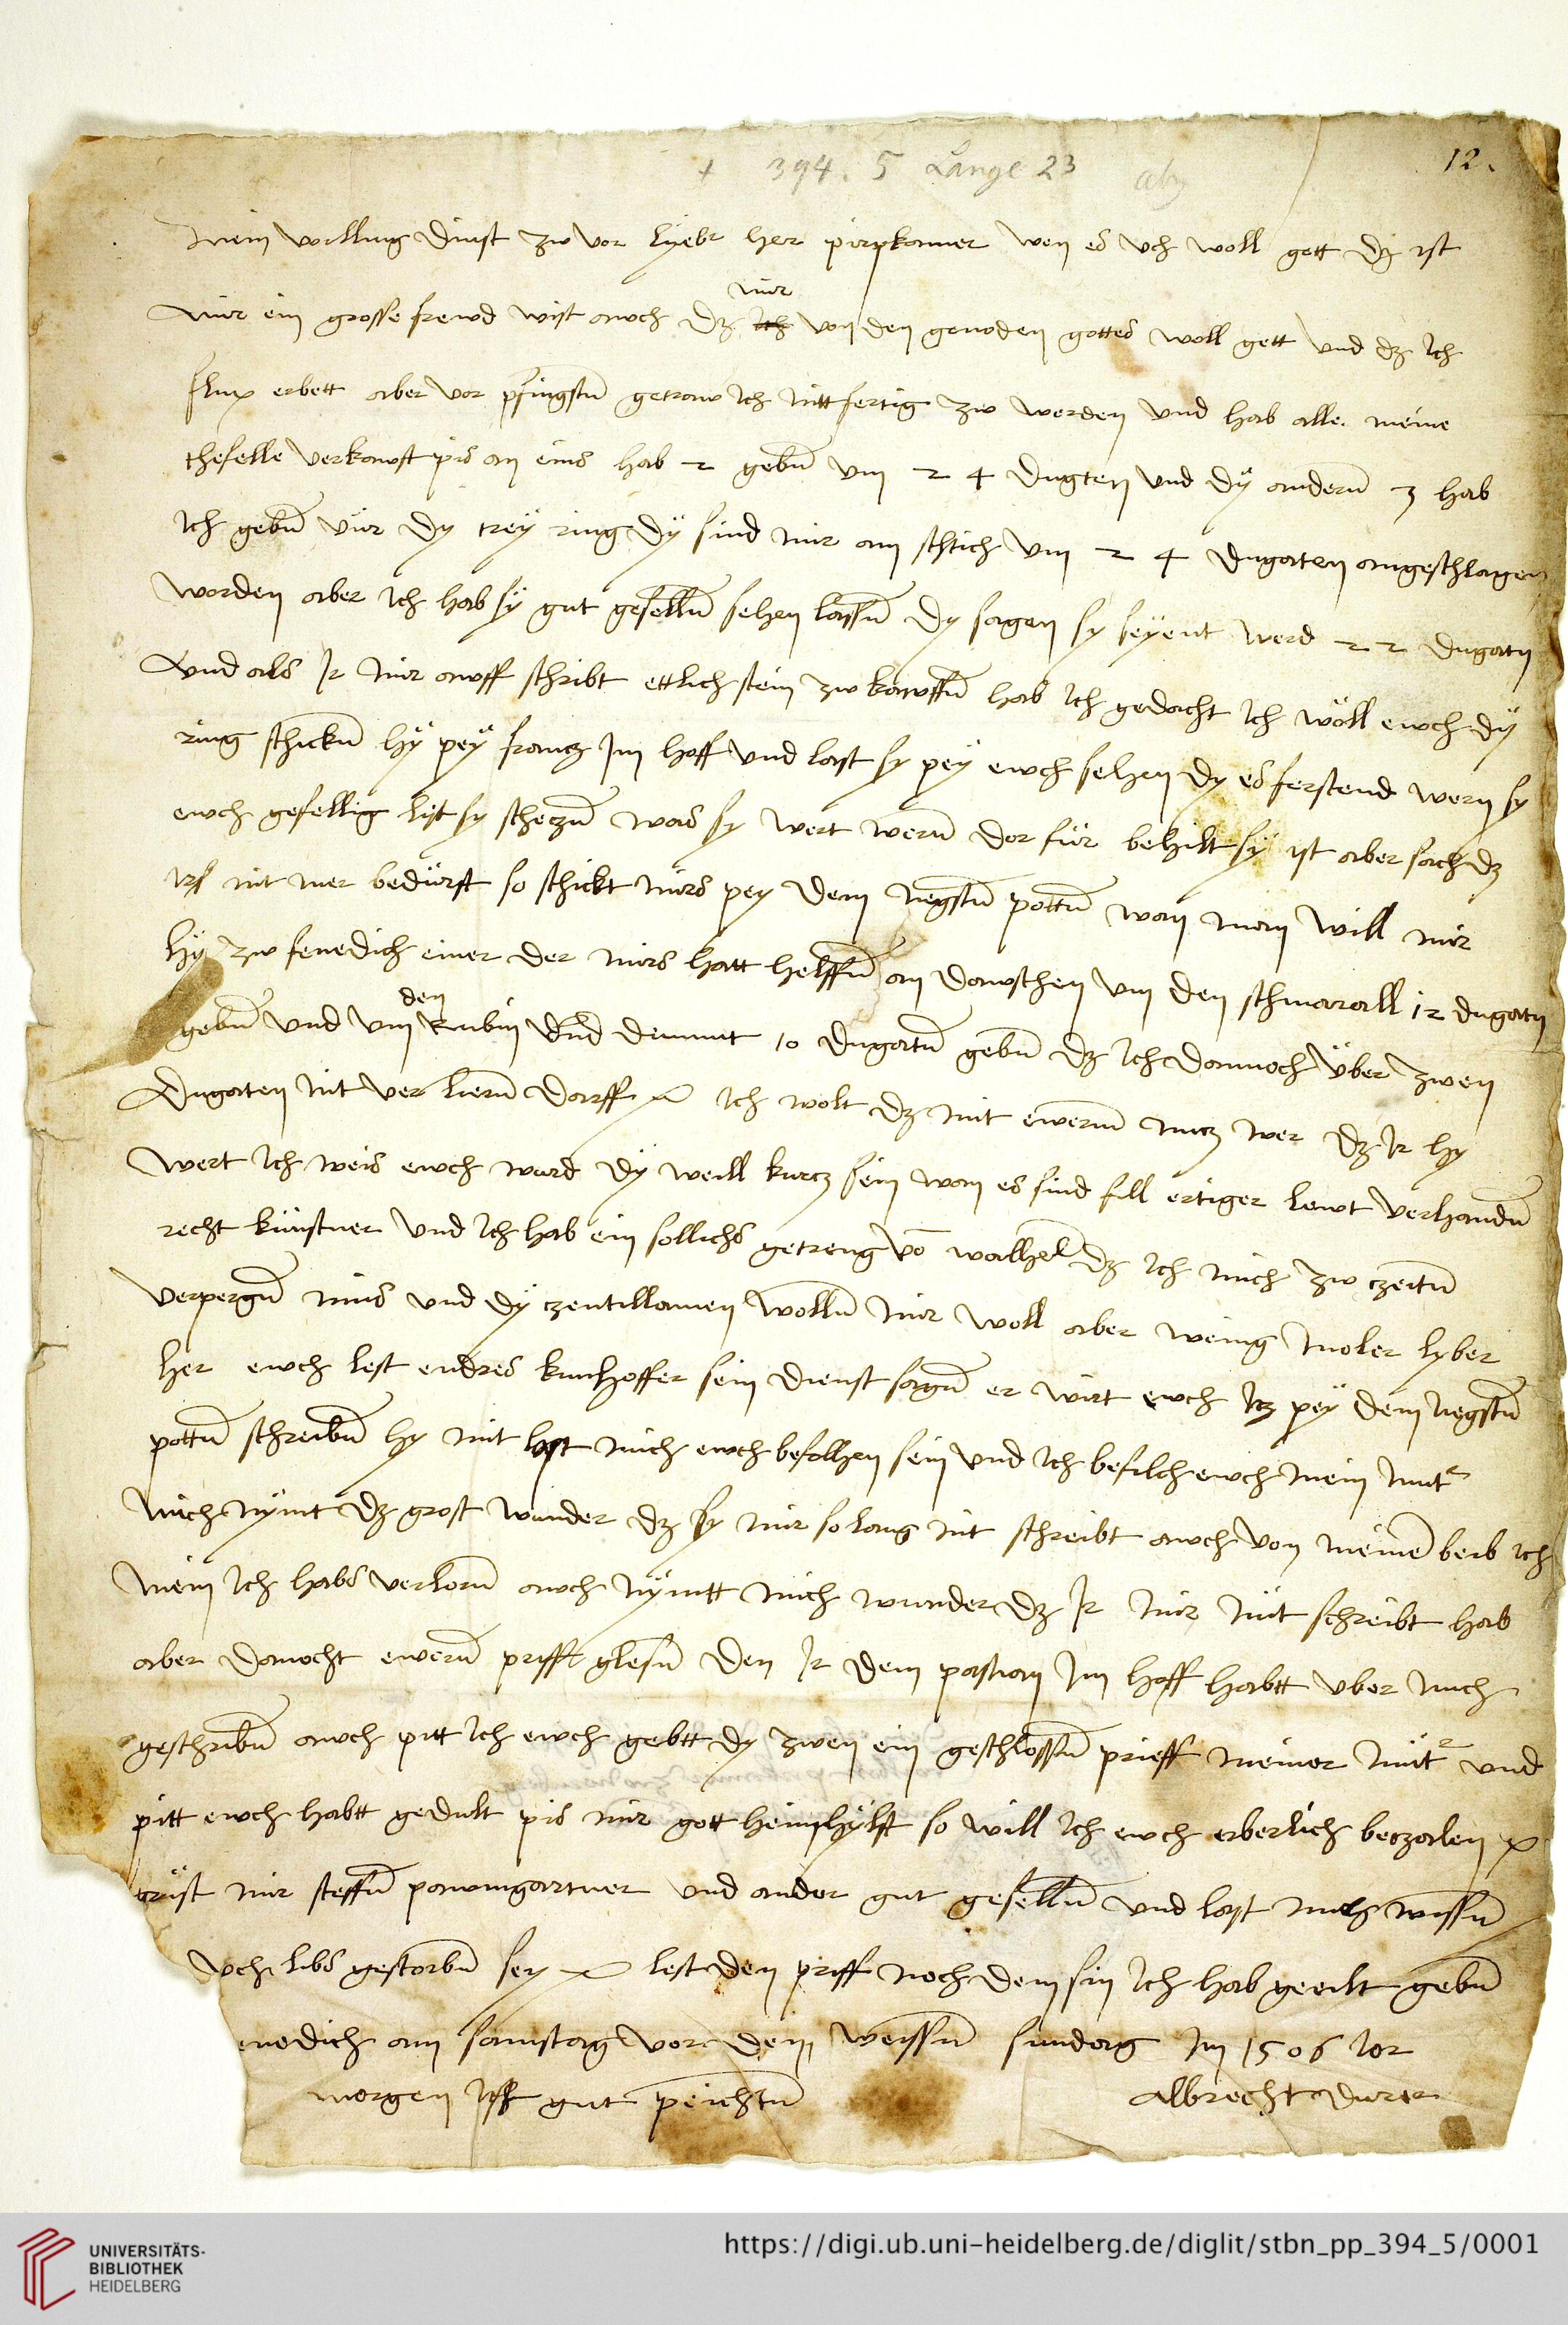 + 394. 5 Lange 23
12.
Mein willing dinst zw vor lyeber her pirpkamer wen es vch woll gett dz ist
mir ein grosse frewd wist awch dz mir von den genoden gottes woll gett vnd dz ich
flux erbett aber vor pfingsten getraw ich nitt fertig zw werden vnd hab alle meine
thefelle verkawft pis an eins hab 2 geben vm 24 dugten vnd dÿ anderen 3 hab
ich geben vür dy trey ring dÿ sind mir am schtich vm 24 dugaten angeschlagen
worden aber ich hab sÿ gut gesellen sehen lassen dy sagen sy seyent werd 22 dugatn
vnd als Ir mir awff schribt ettlich stein zw kawffen hab ich gedacht ich wöll ewch dÿ
ring schicken hÿ peÿ francz Im hoff vnd last sy peÿ ewch sehen dy es ferstend wern sy
ewch gefellig list sy scheczen was sy wert weren dor für behilt sÿ ist aber sach dz
irs nit mer bedürft so schickt mirs pey dem negsten potten wan man will mir
hÿ zw fenedich einer der mirs hatt helffen an dawschen vm den schmarall 12 dugatn
geben vnd vm den Rubin vnd demunt 10 dugaten geben dz ich dannoch über zwen
dugaten nit ver lieren darff ich wolt dz mit ewerem nucz wer dz Ir hy
wert ich weis ewch würd dÿ weill kurcz sein wan es sind fill ertiger lewt verhanden
recht künstner vnd ich hab ein sollichs getreng vō walhen dz ich mich zw czeiten
verpergen mus vnd dÿ czentillamen wollen mir woll aber wenig moler lyber
her ewch lest endres kunhoffer sein dienst sagen er wirt ewch Icz peÿ dem negsten
potten schreiben hy mit last mich ewch befolhen sein vnd ich befilch ewch mein muter
mich nÿmt dz grost wunder dz sy mir so lang nit schreibt awch von meinem beib ich
mein ich habs verloren awch nÿmtt mich wunder dz Ir mir nüt schreibt hab
aber danocht eweren priff glesen den Ir dem pastian Im hoff habtt vber mich
geschriben awch pitt ich ewch gebtt dy zwen ein geschlossen prieff meiner muter vnd
pitt ewch habtt gedult pis mir gott heim hÿlft so will ich ewch erberlich beczalen
grüst mir steffen pawmgartner vnd ander gut gesellen vnd last mich wissen
vch libs gestorben sey lest den priff noch dem sin ich hab geeilt geben
enedich am samstag vor dem weissen sundag Im 1506 Ior
morgen ist gut peichten
albrecht durer
UNIVERSITÄTS-
BIBLIOTHEK
HEIDELBERG
https://digi.ub.uni-heidelberg.de/diglit/stbn_pp_394_5/0001